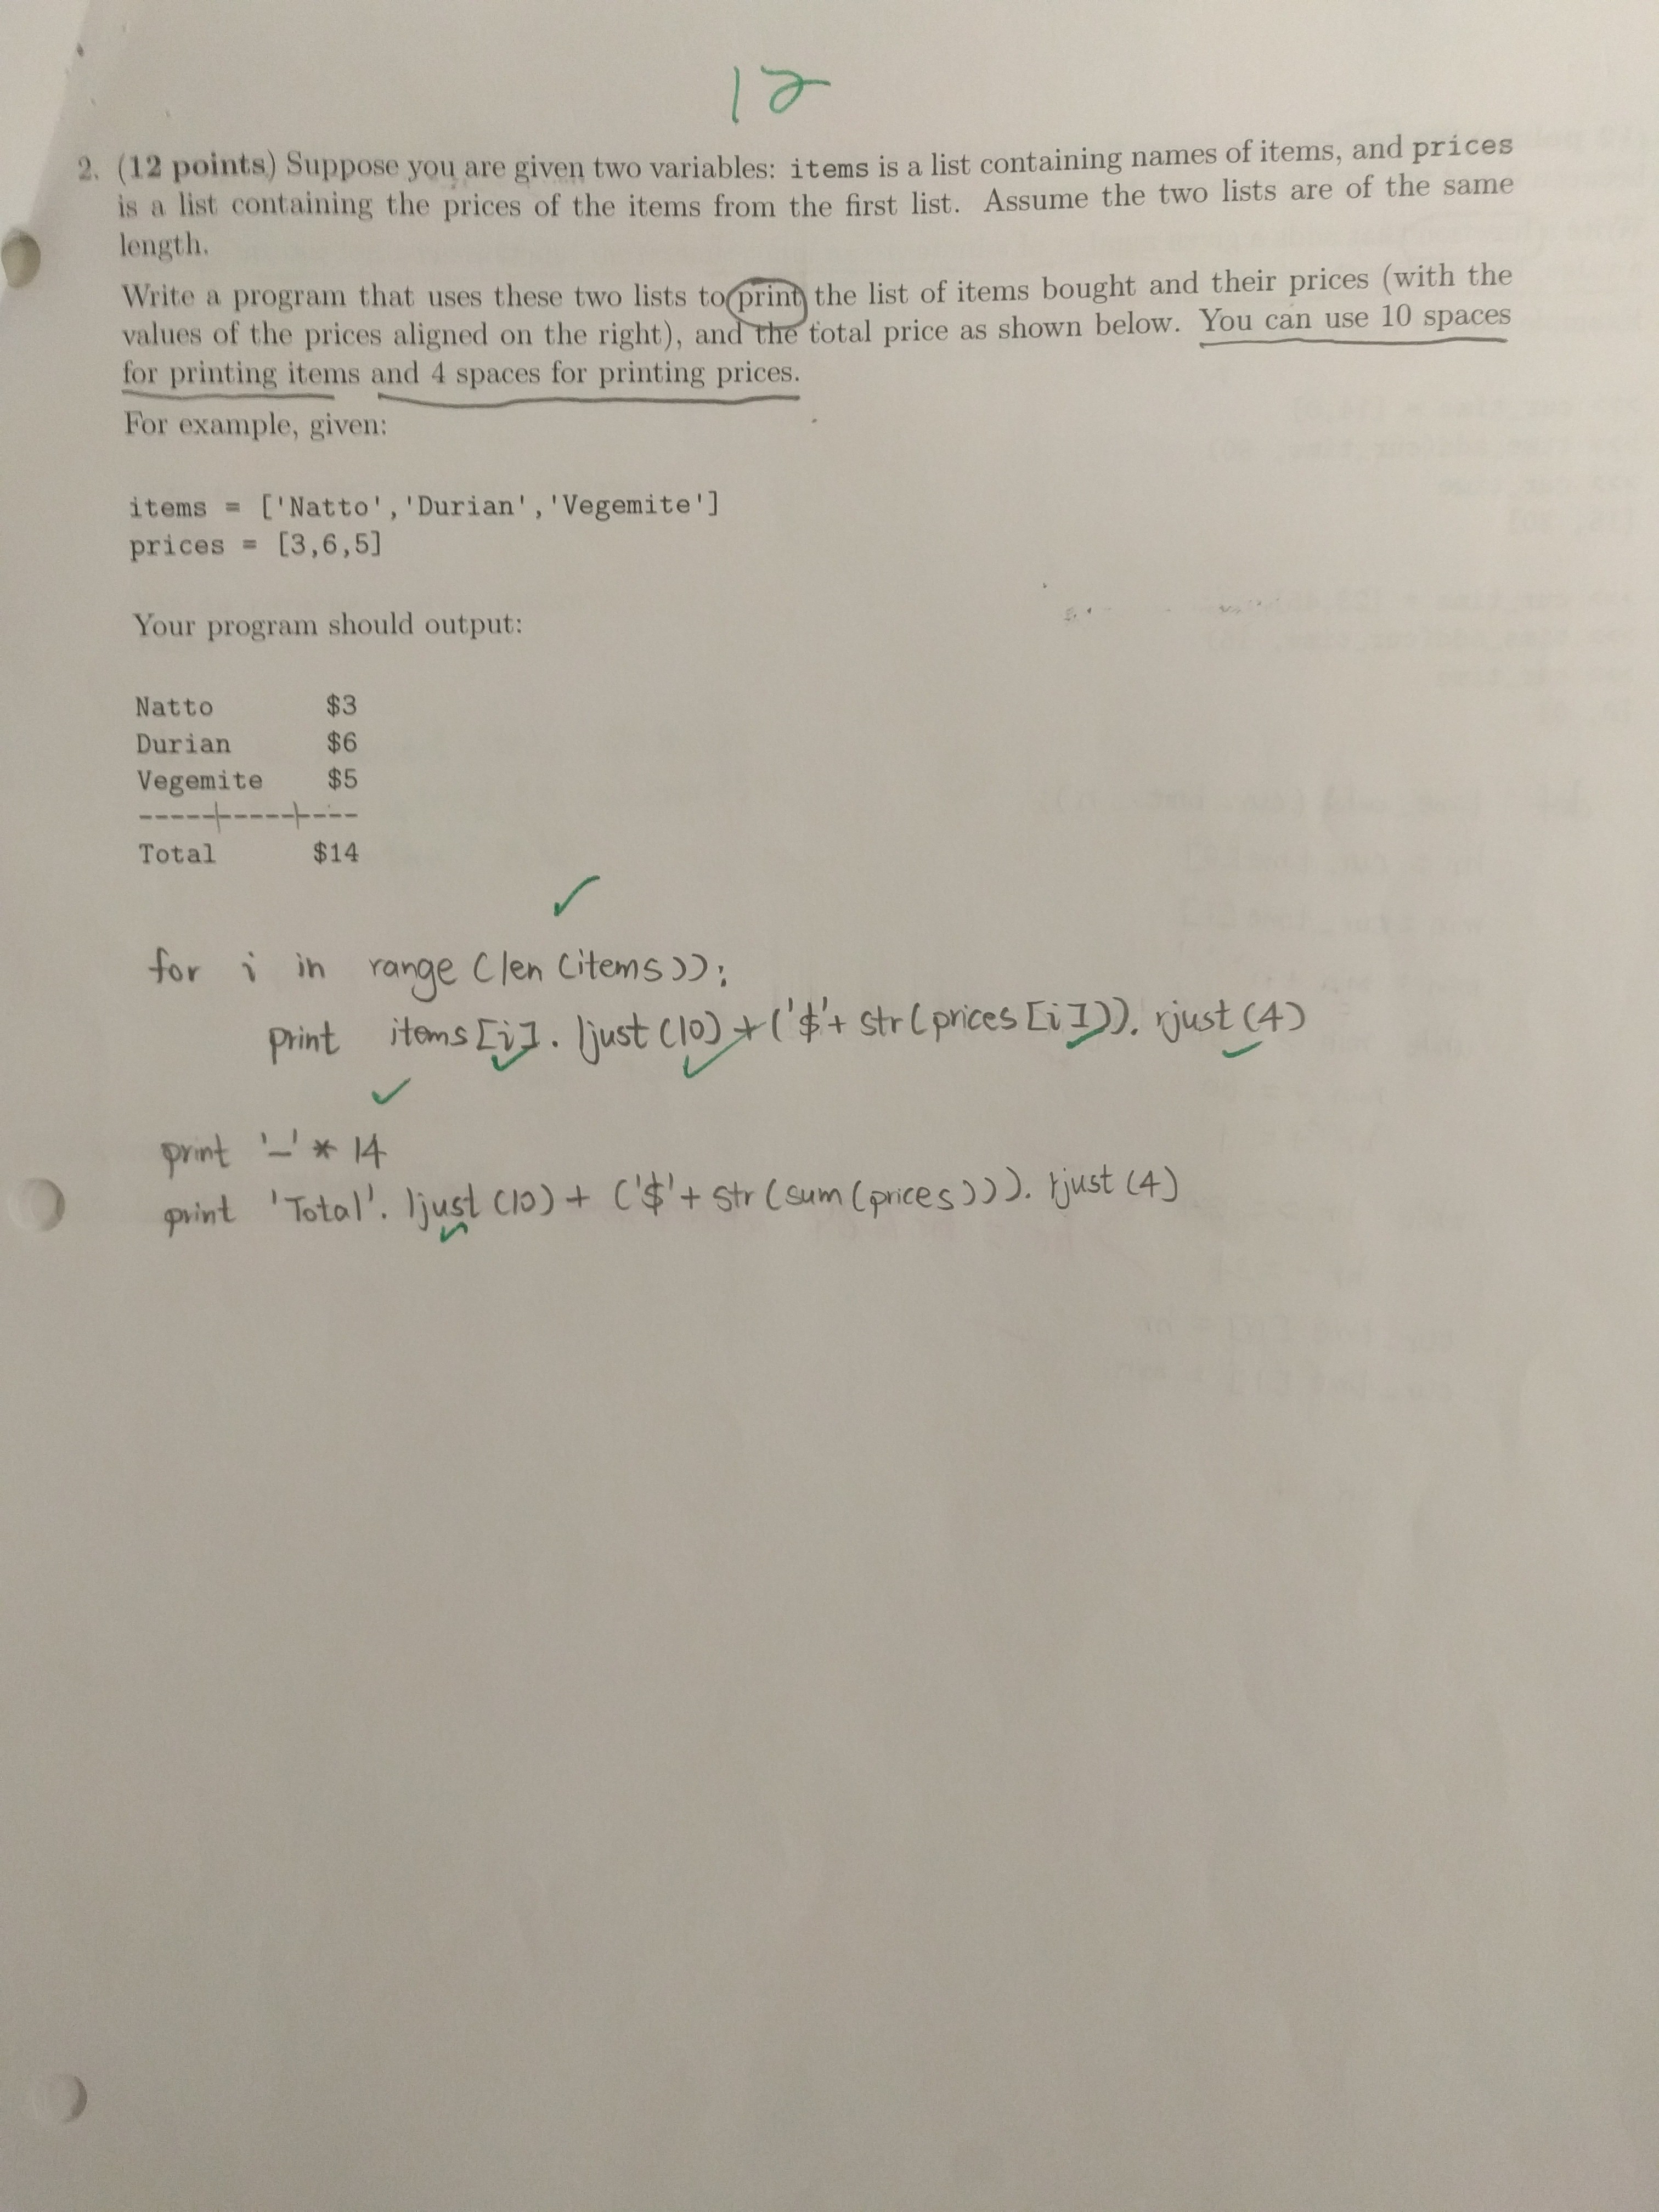 12
2. (12 points) Suppose you are given two variables: items is a list containing names of items, and prices
is a list containing the prices of the items from the first list. Assume the two lists are of the same
length.
Write a program that uses these two lists to print the list of items bought and their prices (with the
values of the prices aligned on the right), and the total price as shown below. You can use 10 spaces
for printing items and 4 spaces for printing prices.
For example, given:
items = ['Natto','Durian','Vegemite']
prices = [3,6,5]
Your program should output:
Natto $3
Durian $6
Vegemite $5
--------------
Total $14
for i in range (len (items)):
print items[i]. ljust (10) + ('$'+ str (prices [i])). rjust (4)
print '-' * 14
print 'Total'. ljust (10) + ('$'+ str (sum (prices))). rjust (4)